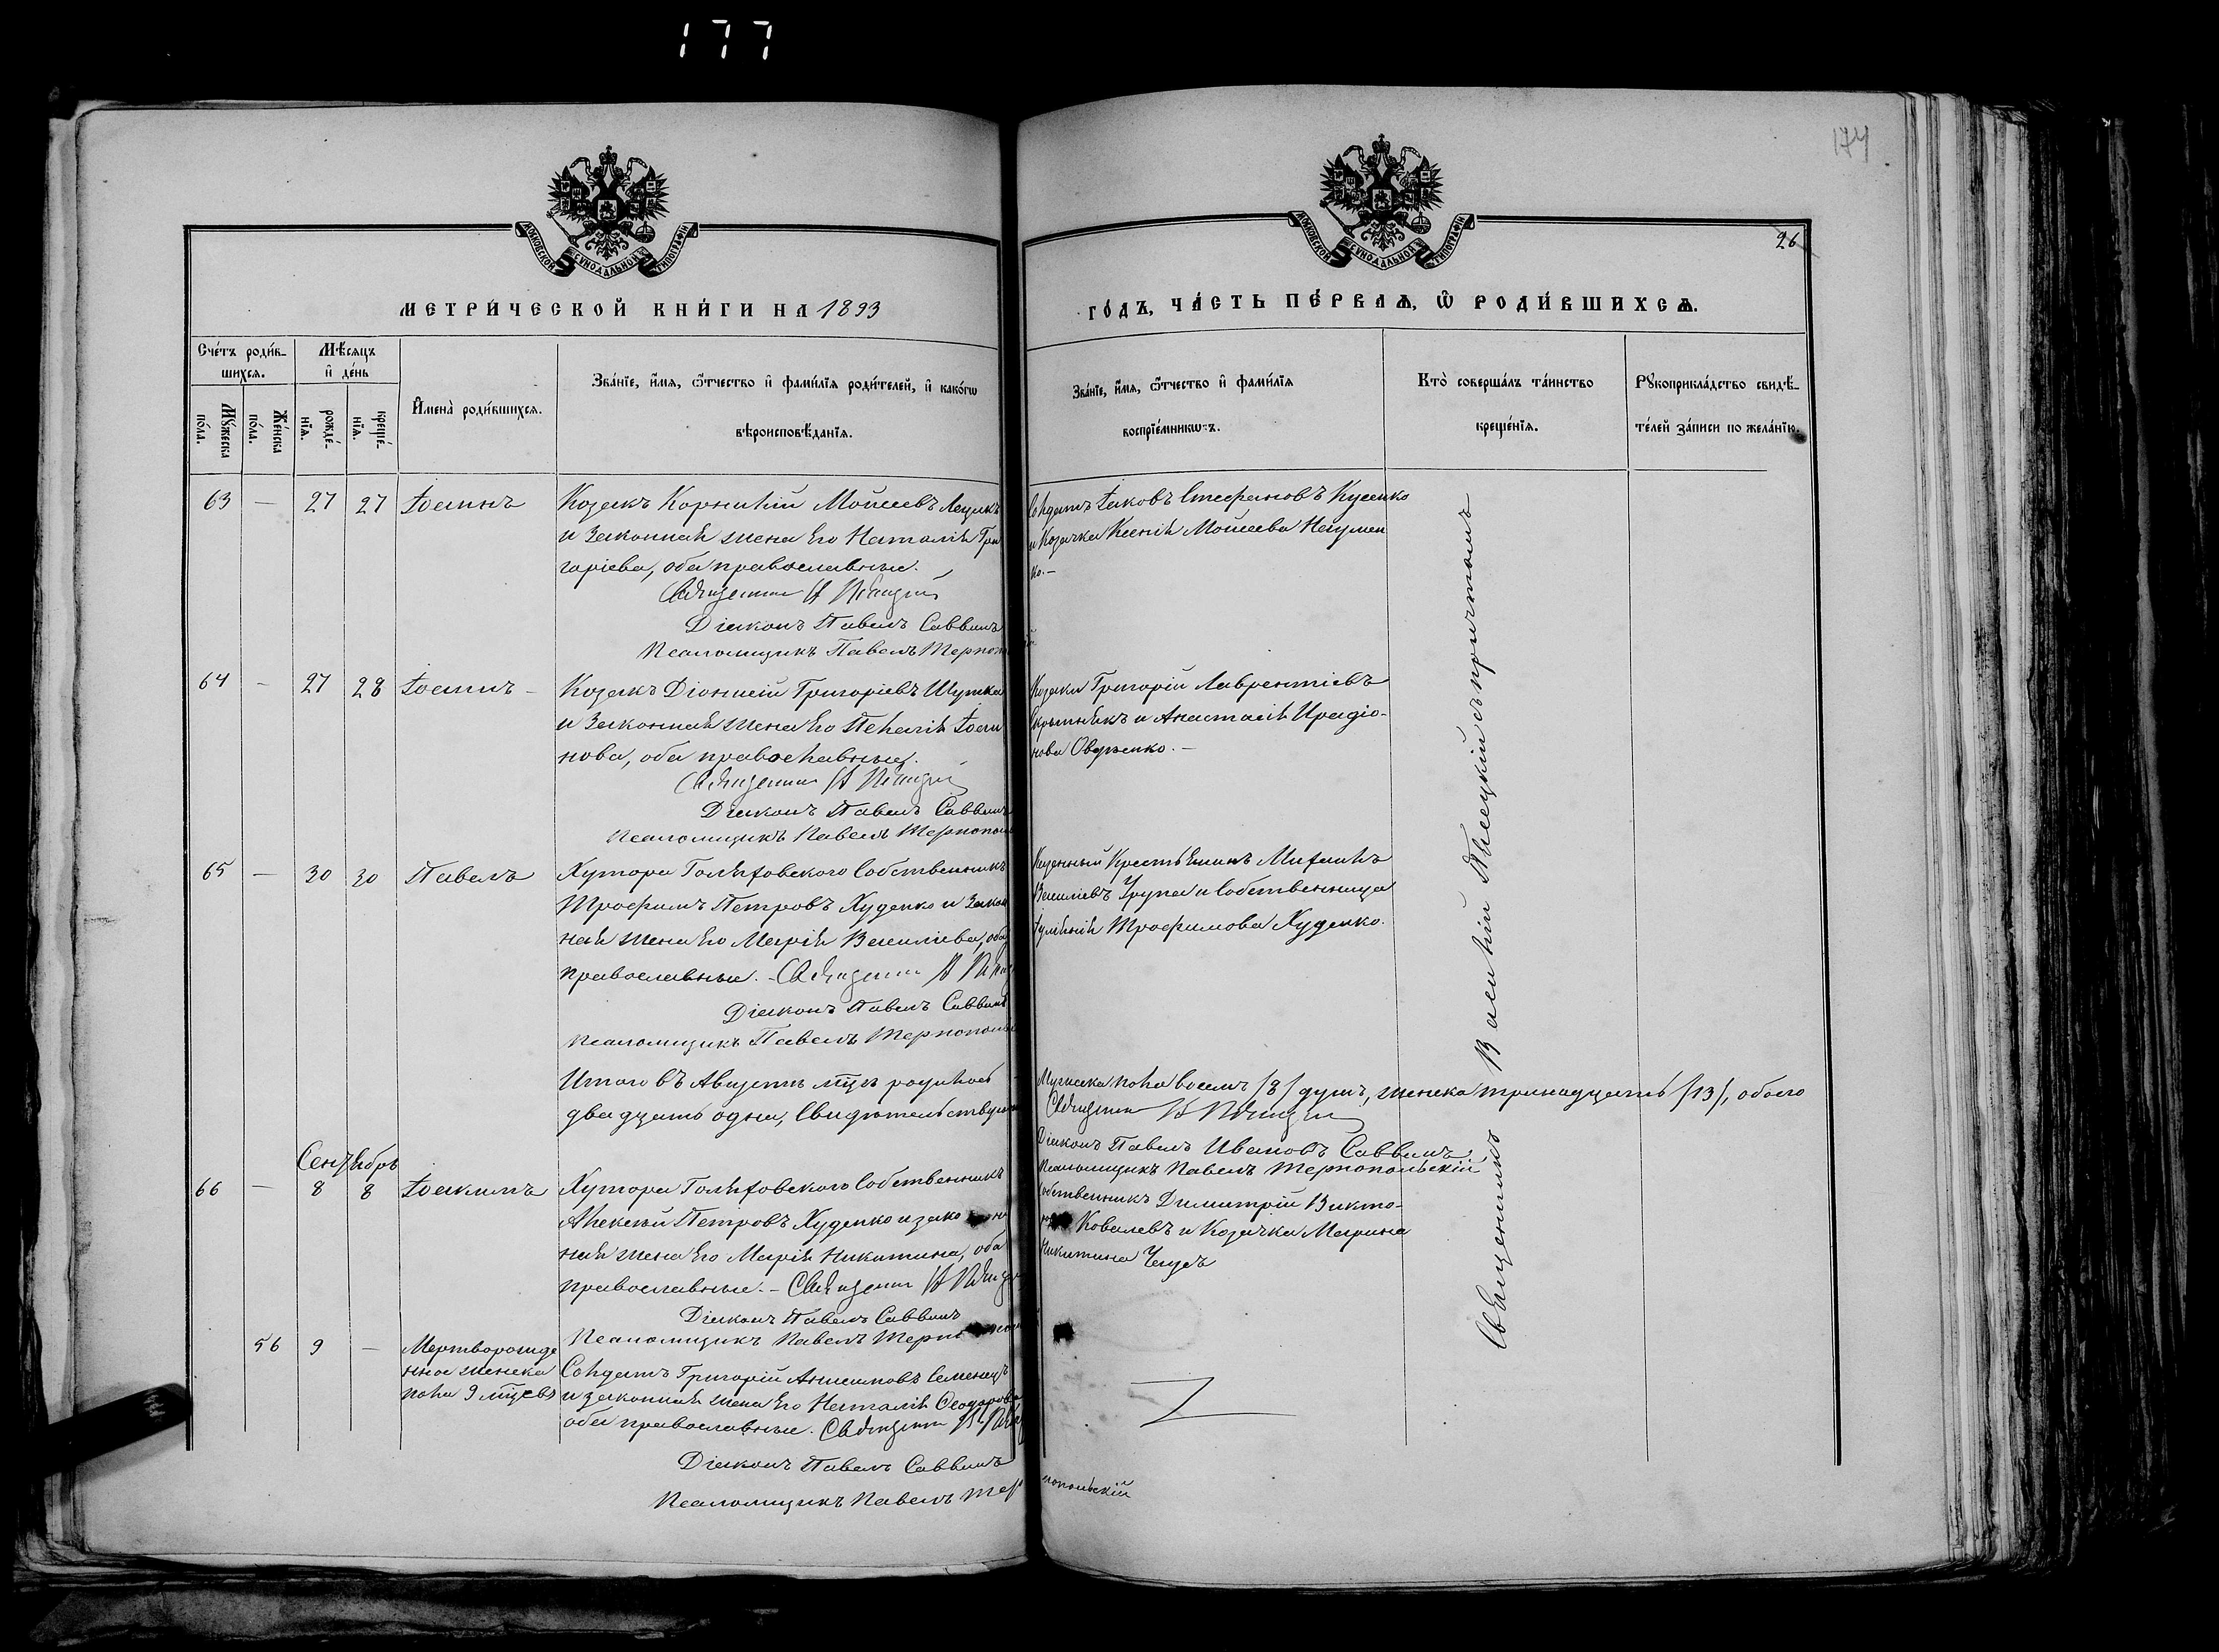 177
174
26
МОСКОВСКОЙ СѴНОДАЛЬНОЙ ТИПОГРАФІИ
МОСКОВСКОЙ СѴНОДАЛЬНОЙ ТИПОГРАФІИ
МЕТРИ́ЧЕСКОЙ КНИ́ГИ НА 1893
ГО́ДЪ, ЧА́СТЬ ПЕ́РВАѦ, Ѡ РОДИ́ВШИХСѦ.
Сче́тъ роди́в-
шихсѧ.
Мѣ́сяцъ
и де́нь
Мꙋ́жеска
по́ла.
Же́нска
по́ла.
рожде́-
нїѧ.
креще́-
нїѧ.
Имена̀ роди́вшихсѧ.
Зва́нїе, и́мѧ, ѻ҆́тчество и фами́лїѧ роди́телей, и како́гѡ
вѣроисповѣ́данїѧ.
Зва́нїе, и́мѧ, ѻ҆́тчество и фами́лїѧ
воспрїе́мникѡвъ.
Кто̀ соверша́лъ та́инство
креще́нїѧ.
Рꙋкоприкла́дство свидѣ́-
телей за́писи по жела́нїю.
63 — 27 27 Іоаннъ
Козакъ Корнилій Моисеевъ Лецикъ
и законная жена его Наталія Гри
горіева, оба православные.
Священник В Пѣницкій
Діаконъ Павелъ Саввинъ
Псаломщикъ Павелъ Тернополь
Солдатъ Іаковъ Стефановъ Куценко
и Козачка Ксенія Моисеева Науmен
ко. —
64 — 27 28 Іоаннъ —
Козакъ Діонисій Григоріевъ Шутка
и законная жена его Пелагія Іоан
нова, оба православные.
Священник В Пѣницкій
Діаконъ Павелъ Саввинъ
Псаломщикъ Павелъ Тернополь
Козаки Григорій Лаврентіевъ
и Анастасія Ирадіо-
нова Овдіенко. —
65 — 30 30 Павелъ
Хутора Голяховского Собственникъ
Трофимъ Петровъ Худенко и закон
ная жена его Марія Василіева, оба
православные. — Священник В
Діаконъ Павелъ Саввинъ
Псаломщикъ Павелъ Тернополь
Казенный Крестьянинъ Михаилъ
Василіевъ Група и Собственница
Іуліанія Трофимова Худенко.
Итого въ Августѣ мцѣ родилось
двадцать одна, Свидѣтельствуем
Мужеска пола восемь /8/ душъ, женска тринадцать /13/, обоего
Священник
Діаконъ Павелъ Ивановъ Саввинъ
Псаломщикъ Павелъ Тернопольскій
Сентябрь
66 — 8 8 Іоакимъ
Хутора Голяховского Собственникъ
Алексѣй Петровъ Худенко и закон
ная жена его Марія Никитина, оба
православные. — Священник В
Діаконъ Павелъ Саввинъ
Псаломщикъ Павелъ Терно
Собственникъ Димитрій Викто-
Ковалевъ и Козачка Марина
Никитина Чецъ
56 9 —
Мертворожде
нное женска
пола 9 мцевъ
Солдатъ Григорій Анисимовъ Семенецъ
и законная жена его Наталія Ѳеодорова
оба православные. Священник В
Діаконъ Павелъ Саввинъ
Псаломщикъ Павелъ Тернопольскій
Священникъ Василій Пясецкій съ причтомъ